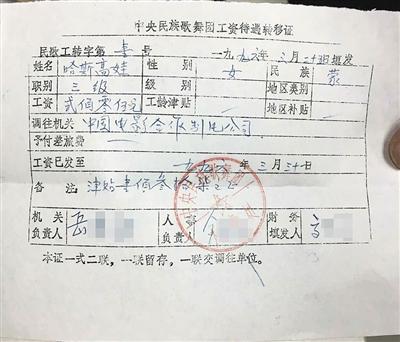 中央民族歌舞团工资待遇转移证
民歌工转字第 号 一九九六年 三月二十 日填发
姓名 哈斯高娃 性别 女 民族 蒙
职别 三级 级别 地区类别
工资 贰佰零 元 工龄津贴 地区补贴
调往机关 中国电影合作制片公司
予付差旅费
工资已发至 一九九六年 三月三十 日
备注: 津贴 佰叁拾柒元
机关负责人 岳 人事负责人 财务填发人
本证一式二联,一联留存,一联交调往单位。